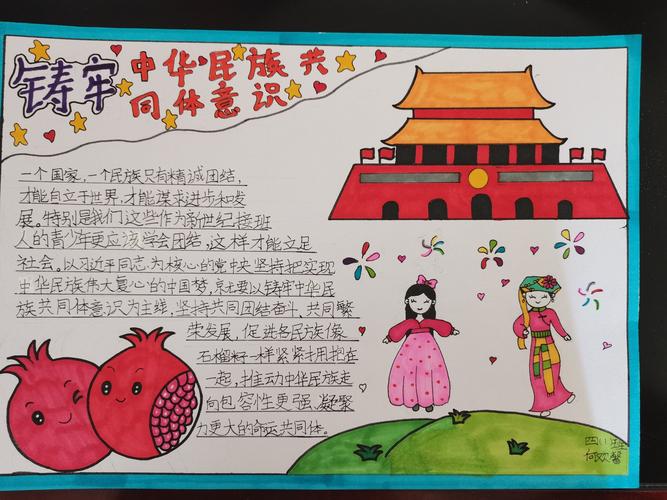 铸牢中华民族共
同体意识
一个国家,一个民族只有精诚团结,
才能自立于世界,才能谋求进步和发
展。特别是我们这些作为新世纪接班
人的青少年更应该学会团结,这样才能立足
社会。以习近平同志为核心的党中央坚持把实现
中华民族伟大复心的中国梦,就要以铸牢中华民
族共同体意识为主线,坚持共同团结奋斗、共同繁
荣发展,促进各民族像
石榴籽一样紧紧拥抱在
一起,推动中华民族走
向包容性更强、凝聚
力更大的命运共同体。
四(1)班
何欢馨